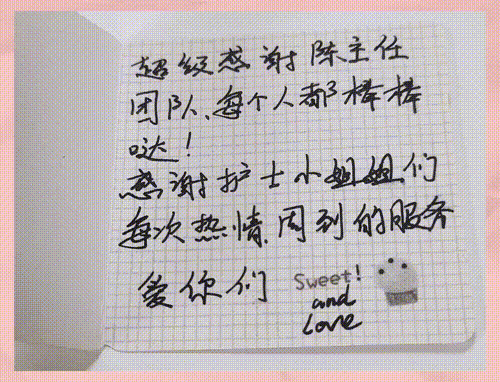 超级感谢陈主任
团队、每个人都棒棒
哒！
感谢护士小姐姐们
每次热情、周到的服务
爱你们
Sweet!
and
Love